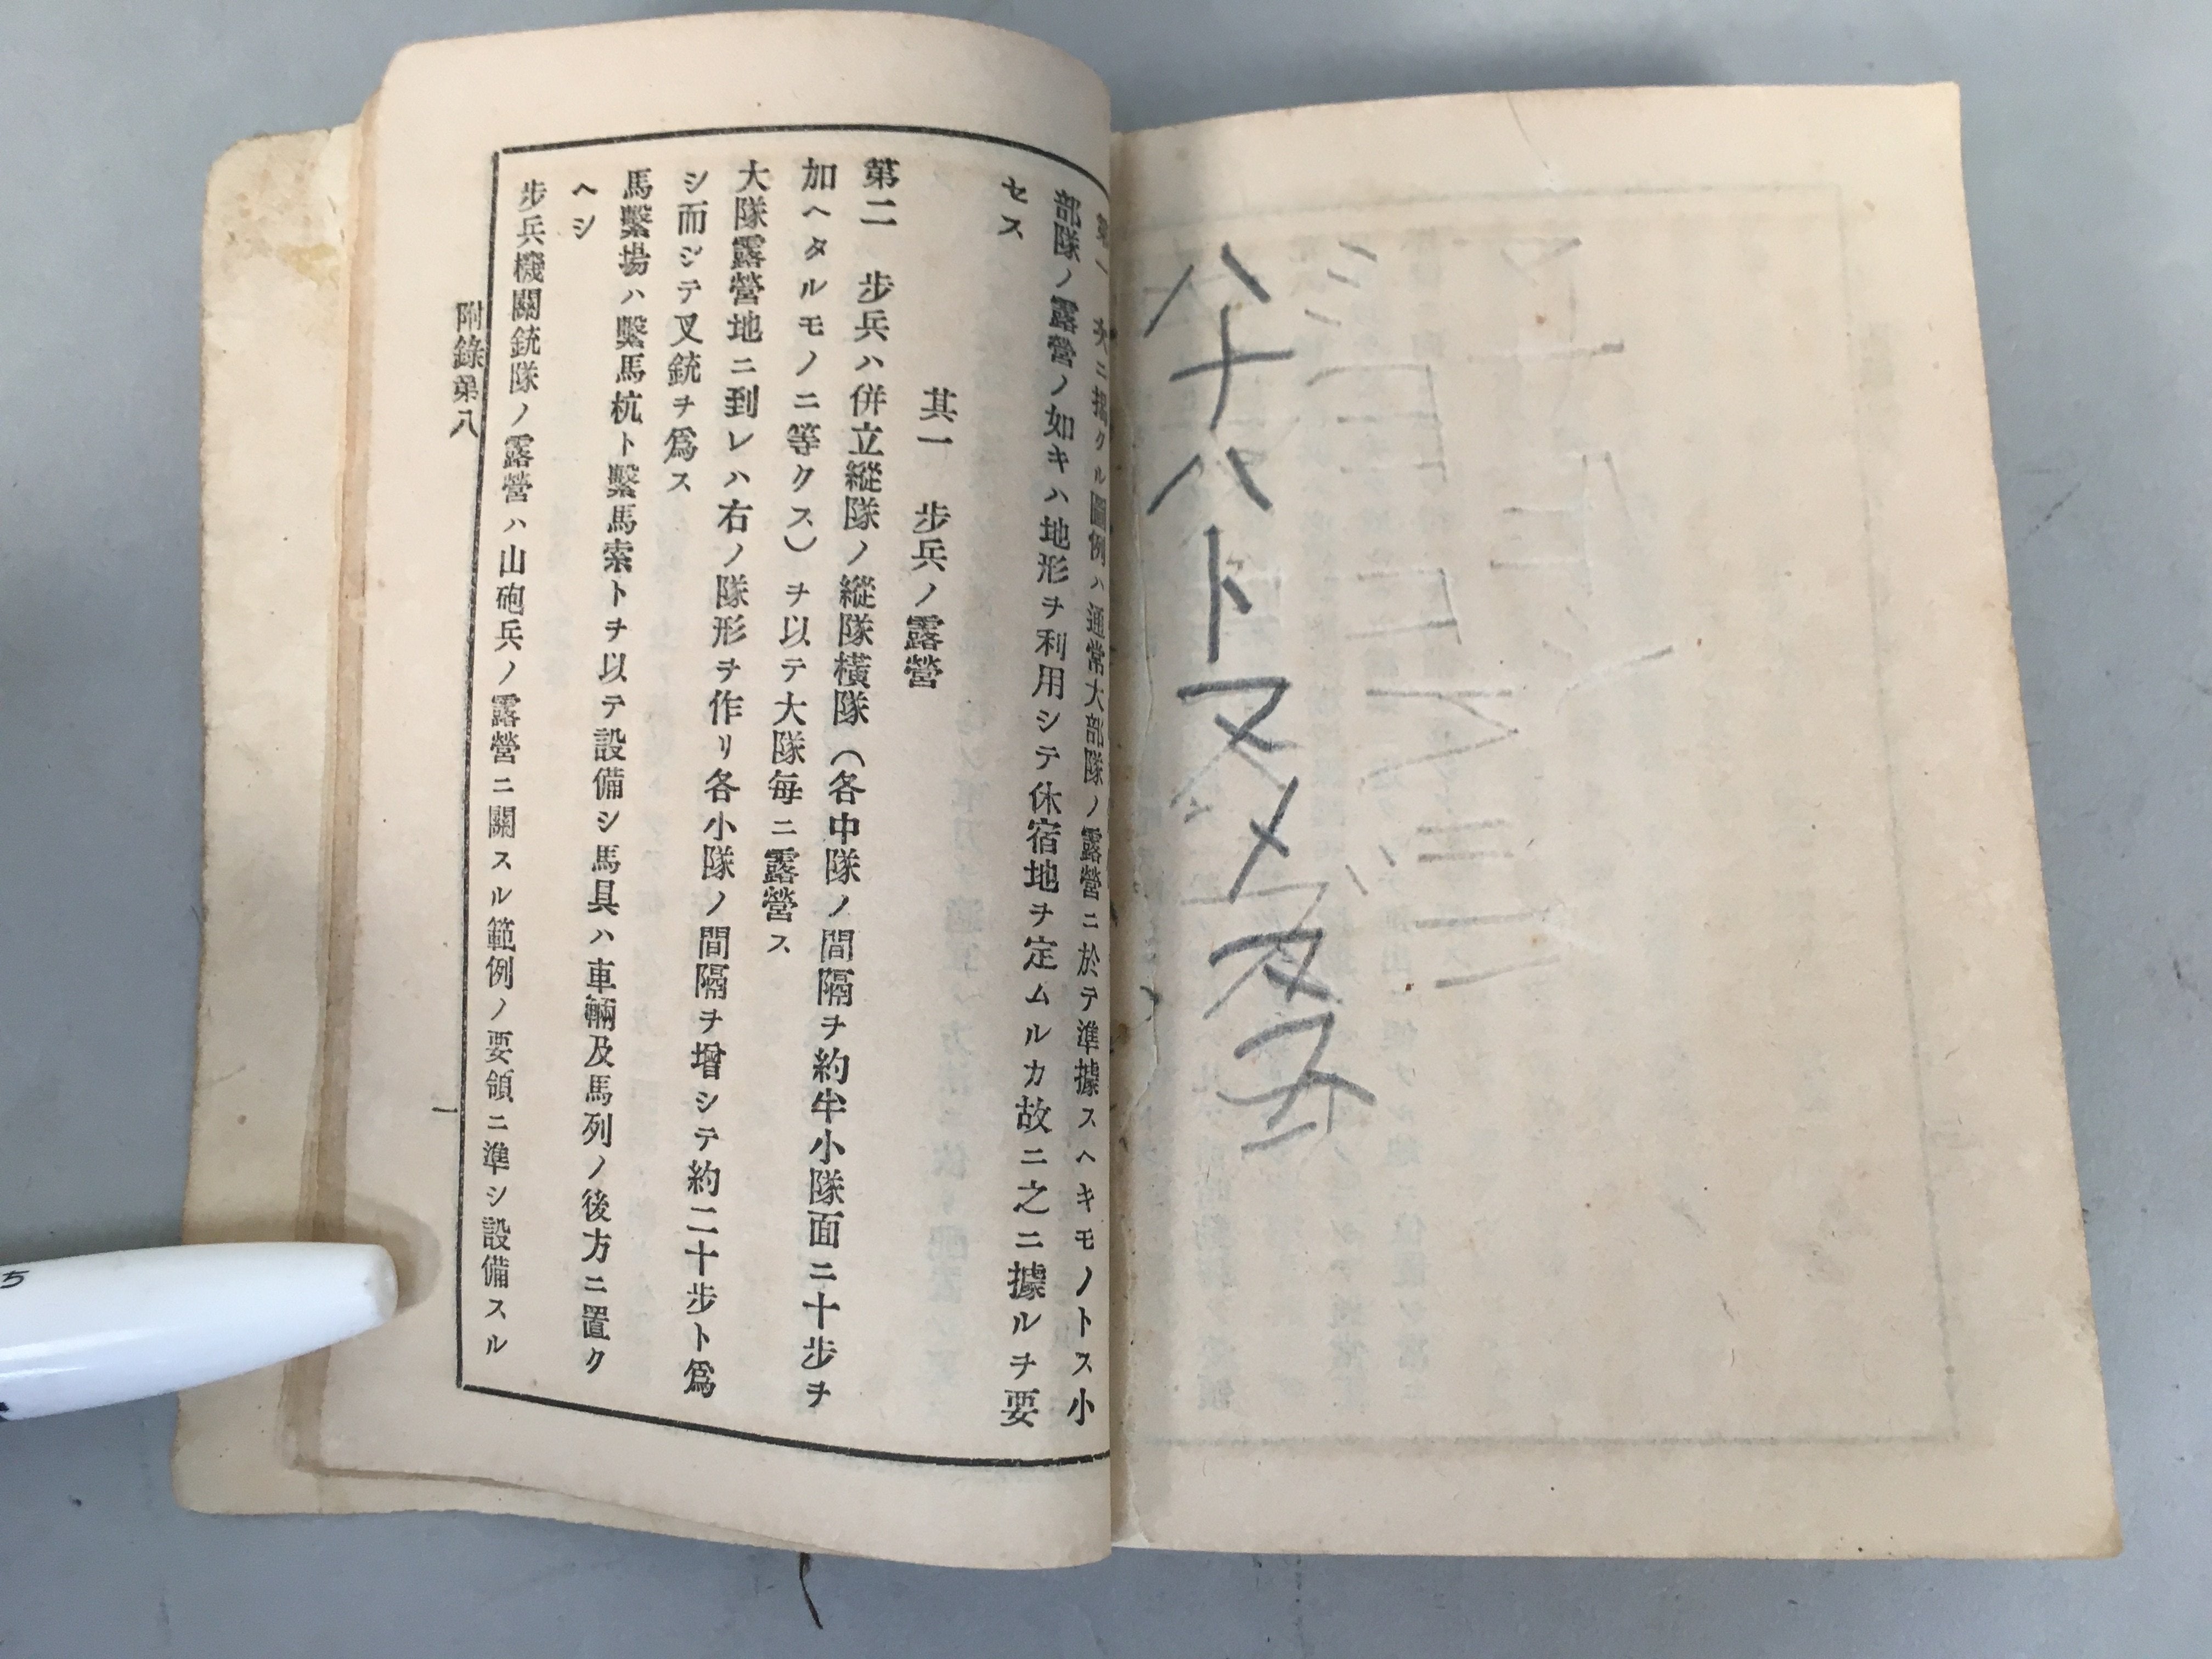 ハナハトマメマス
第一　次ニ揭クル圖例ハ通常大部隊ノ露營ニ於テ準據スヘキモノトス小
部隊ノ露營ノ如キハ地形ヲ利用シテ休宿地ヲ定ムルカ故ニ之ニ據ルヲ要
セス
其一　步兵ノ露營
第二　步兵ハ併立縱隊ノ縱隊橫隊（各中隊ノ間隔ヲ約半小隊面ニ十步ヲ
加ヘタルモノニ等クス）ヲ以テ大隊每ニ露營ス
大隊露營地ニ到レハ右ノ隊形ヲ作リ各小隊ノ間隔ヲ增シテ約二十步ト爲
シ而シテ叉銃ヲ爲ス
馬繫場ハ繫馬杭ト繫馬索トヲ以テ設備シ馬具ハ車輛及馬列ノ後方ニ置ク
ヘシ
步兵機關銃隊ノ露營ハ山砲兵ノ露營ニ關スル範例ノ要領ニ準シ設備スル
附錄第八
一
5